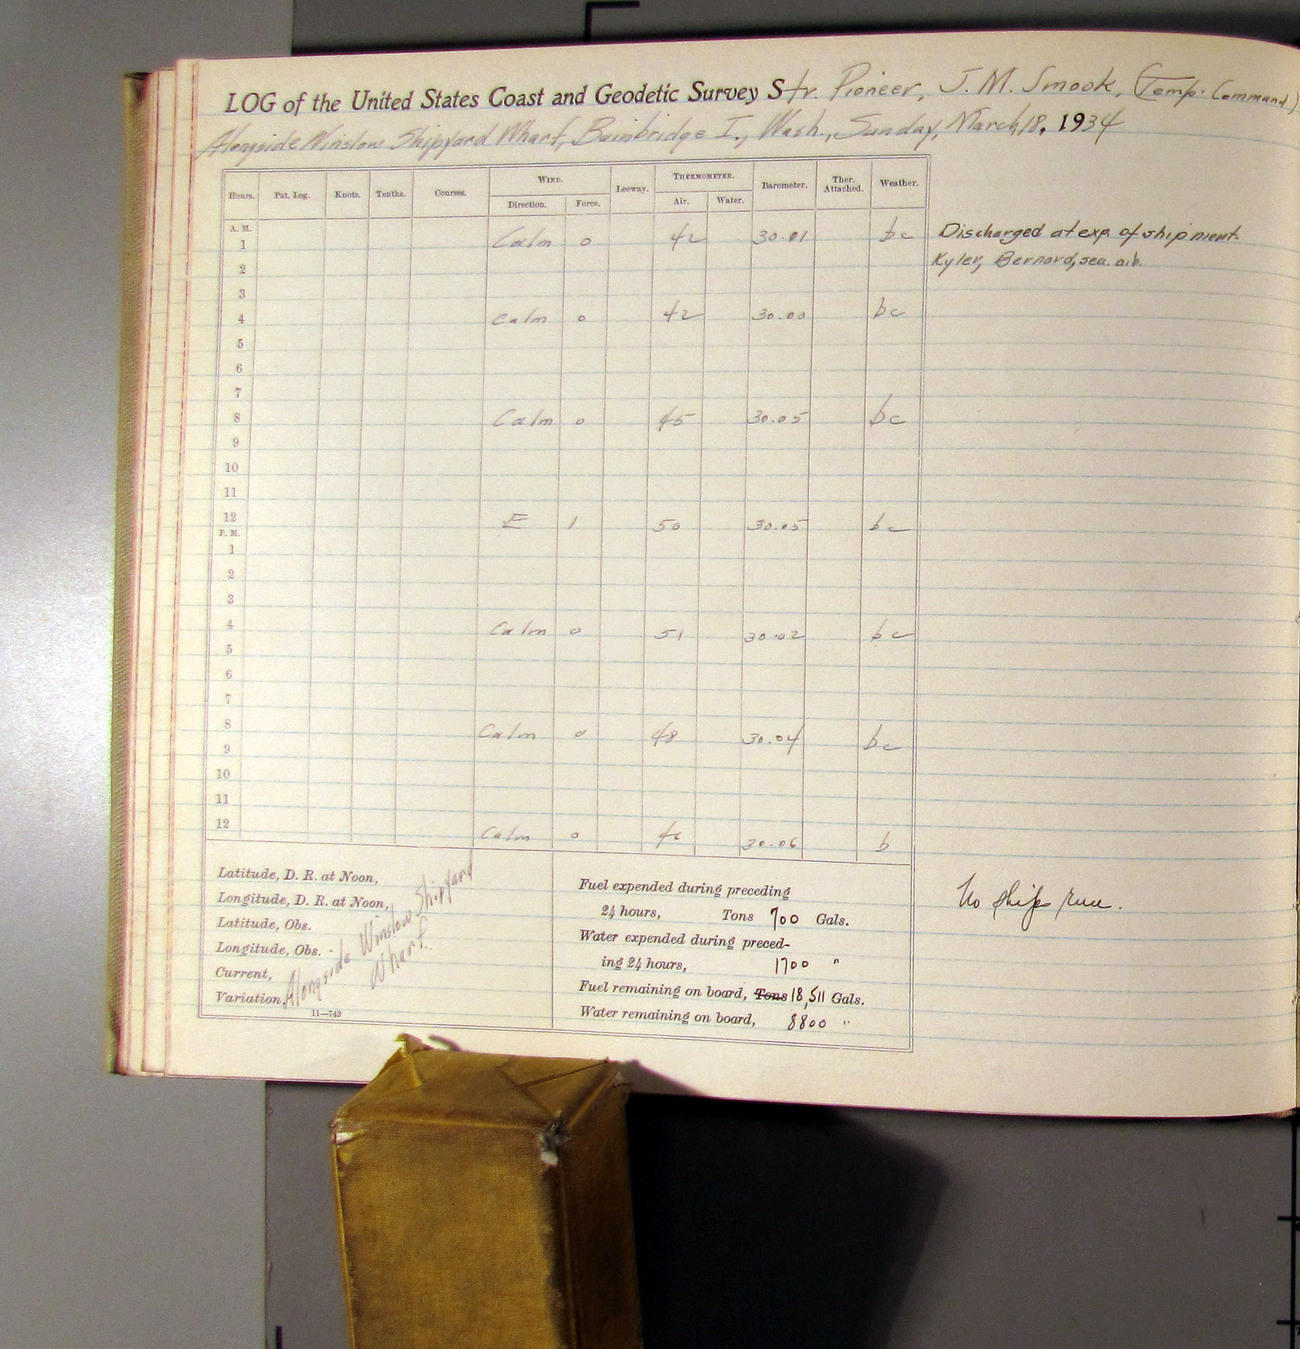 LOG of the United States Coast and Geodetic Survey Str. Pioneer, J. M. Smook, (Temp. Command.)
Alongside Winslow Shipyard Wharf, Bainbridge I., Wash., Sunday, March 18, 1934
Hours. Pat. Log. Knots. Tenths. Courses. WIND. Leeway. THERMOMETER. Barometer. Ther. Attached. Weather.
Direction. Force. Air. Water.
A. M.
1 Calm 0 42 30.01 bc Discharged at exp. of shipment.
2 Kyler, Bernard, sea. a.b.
3
4 Calm 0 42 30.00 bc
5
6
7
8 Calm 0 45 30.05 bc
9
10
11
12 E 1 50 30.05 bc
P. M.
1
2
3
4 Calm 0 51 30.02 bc
5
6
7
8 Calm 0 48 30.04 bc
9
10
11
12 Calm 0 30.06 b
Latitude, D. R. at Noon,
Longitude, D. R. at Noon,
Latitude, Obs.
Longitude, Obs. -
Current,
Variation,
Alongside Winslow Shipyard
Wharf.
11—743
Fuel expended during preceding
24 hours, Tons 700 Gals.
Water expended during preced-
ing 24 hours, 1700 "
Fuel remaining on board, Tons 18,511 Gals.
Water remaining on board, 8800 "
No ship